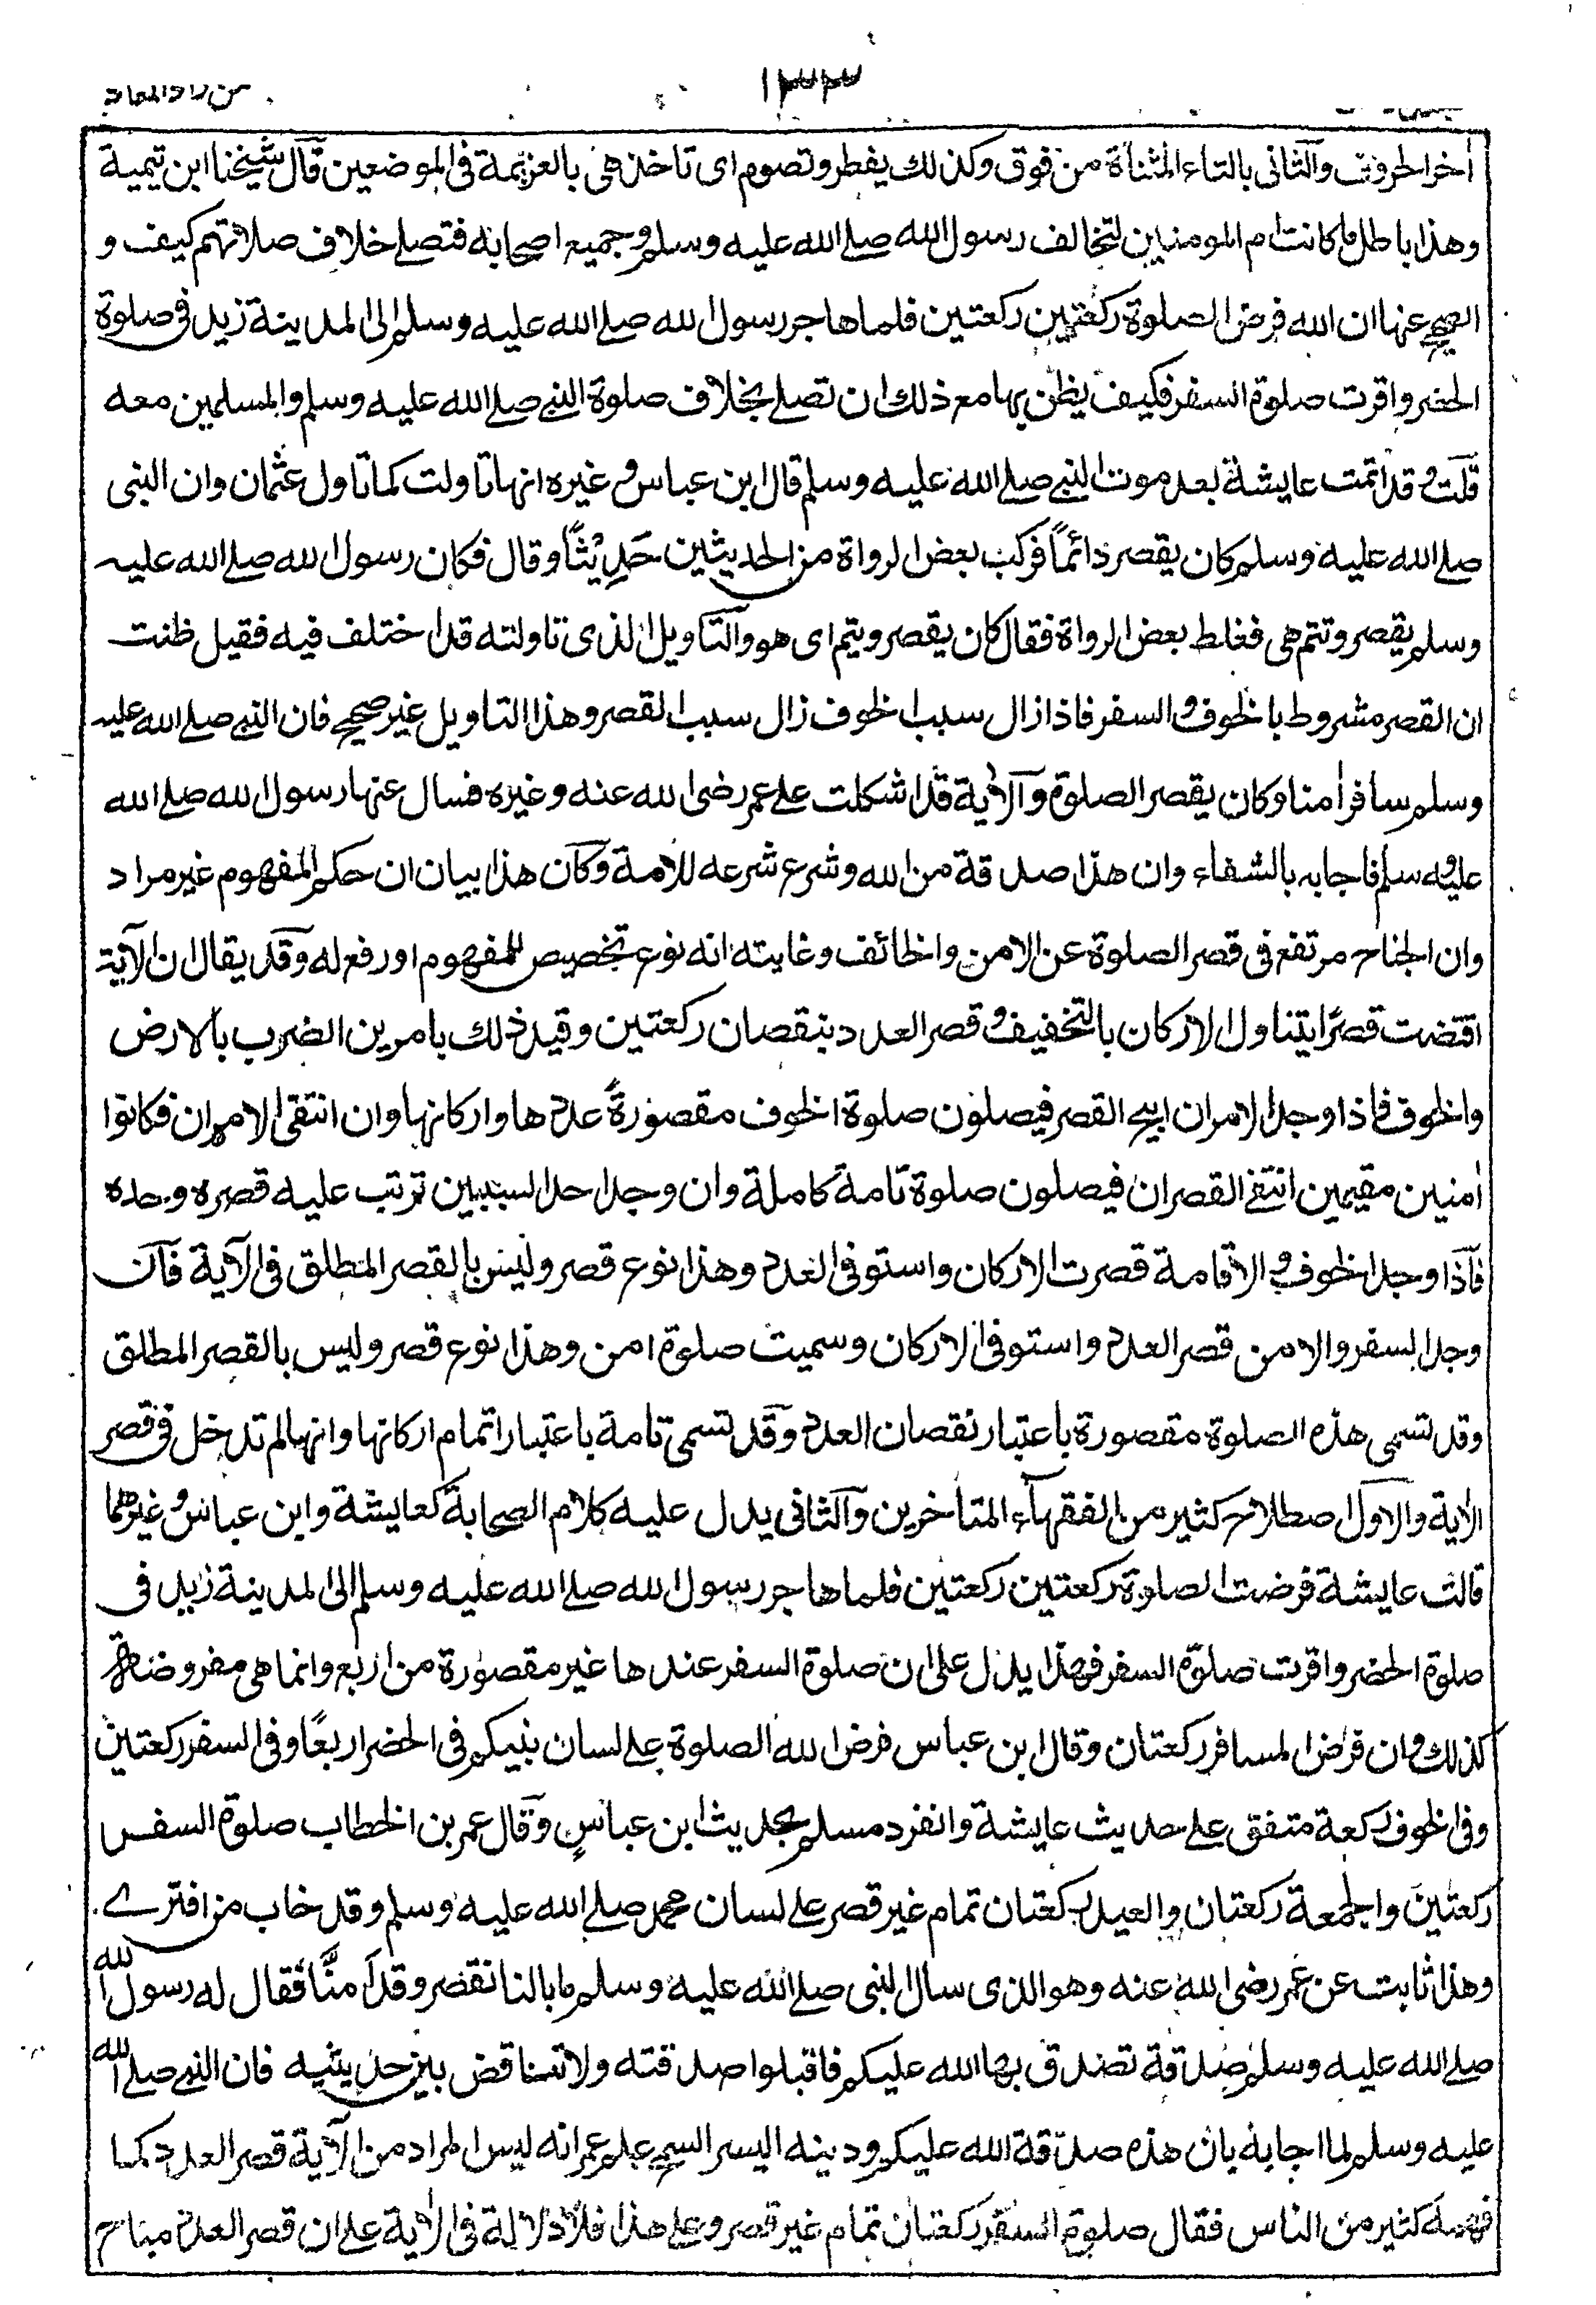 ١٣٣
من زاد المعاد
اٰخر الحروف والثانی بالتاء المثناة من فوق وکذلك یفطر وتصوم ای تاخذ هی بالعزیمة فی الموضعین قال شیخنا ابن تیمیة
وهذا باطل ما کانت ام المومنین لتخالف رسول الله صلے الله علیه وسلم وجمیع اصحابه فتصلے خلاف صلاتهم کیف و
الصحیح عنها ان الله فرض الصلوة رکعتین رکعتین فلما هاجر رسول الله صلے الله علیه وسلم الی المدینة زید فی صلوة
الحضر واقرت صلوة السفر فکیف یظن بها مع ذلك ان تصلے بخلاف صلوة النبے صلے الله علیه وسلم والمسلمین معه
قلت وقد اتمت عایشة بعد موت النبے صلے الله علیه وسلم قال ابن عباس و غیره انها تاولت کما تاول عثمان وان النبی
صلے الله علیه وسلم کان یقصر دائماً فرکب بعض الرواة من الحدیثین حَدِیْثاً وقال فکان رسول الله صلے الله علیه
وسلم یقصر وتتم هی فغلط بعض الرواة فقال کان یقصر ویتم ای هو والتاویل الذی تاولته قد اختلف فیه فقیل ظنت
ان القصر مشروط بالخوف و السفر فاذا زال سبب الخوف زال سبب القصر وهذا التاویل غیر صحیح فان النبے صلے الله علیه
وسلم سافر اٰمنا وکان یقصر الصلوة والآیة قد اشکلت علے عمر رضی الله عنه وغیره فسال عنها رسول الله صلے الله
علیه وسلم فاجابه بالشفاء وان هذا صدقة من الله وشرع شرعه للامة وکان هذا بیان ان حکم المفهوم غیر مراد
وان الجناح مرتفع فی قصر الصلوة عن الامن والخائف وغایته انه نوع تخصیص للمفهوم او رفع له وقد یقال ان الآیة
اقتضت قصرًا یتناول الارکان بالتخفیف و قصر العدد بنقصان رکعتین وقید ذلك بامرین الضرب بالارض
والخوف فاذا وجد الامران ابیح القصر فیصلون صلوة الخوف مقصورةً عددها وارکانها وان انتقی الامران فکانوا
اٰمنین مقیمین انتفے القصران فیصلون صلوة تامة کاملة وان وجد احد السببین ترتب علیه قصره وحده
فاذا وجد الخوف و الاقامة قصرت الارکان واستوفی العدد وهذا نوع قصر ولیس بالقصر المطلق فی الآیة فان
وجد السفر والامن قصر العدد واستوفی الارکان وسمیت صلوة امن وهذا نوع قصر ولیس بالقصر المطلق
وقد تسمی هذه الصلوة مقصورة باعتبار نقصان العدد وقد تسمی تامة باعتبار اتمام ارکانها وانها لم تدخل فی قصر
الآیة والاول اصطلاح کثیر من الفقهاء المتاخرین والثانی یدل علیه کلام الصحابة کعایشة وابن عباس و غیرهما
قالت عایشة فرضت الصلوة رکعتین رکعتین فلما هاجر رسول الله صلے الله علیه وسلم الی المدینة زید فی
صلوة الحضر واقرت صلوة السفر فهذا یدل علی ان صلوة السفر عندها غیر مقصورة من اربع وانما هی مفروضة
کذلك وان فرض المسافر رکعتان وقال ابن عباس فرض الله الصلوة علے لسان نبیکم فی الحضر اربعًا وفی السفر رکعتین
وفی الخوف رکعة متفق علے حدیث عایشة وانفرد مسلم بحدیث ابن عباسٍ وقال عمر بن الخطاب صلوة السفر
رکعتین والجمعة رکعتان والعید رکعتان تمام غیر قصر علے لسان محمد صلے الله علیه وسلم وقد خاب من افترے
وهذا ثابت عن عمر رضی الله عنه وهو الذی سال النبی صلے الله علیه وسلم ما بالنا نقصر وقد اَمنَّا فقال له رسول الله
صلے الله علیه وسلم صدقة تصدق بها الله علیکم فاقبلوا صدقته ولا تناقض بین حدیثیه فان النبے صلے الله
علیه وسلم لما اجابه بان هذه صدقة الله علیکم ودینه الیسر السمح علم عمر انه لیس المراد من الآیة قصر العدد کما
فهمه کثیر من الناس فقال صلوة السفر رکعتان تمام غیر قصر وعلے هذا فلا دلالة فی الآیة علے ان قصر العدد مباح